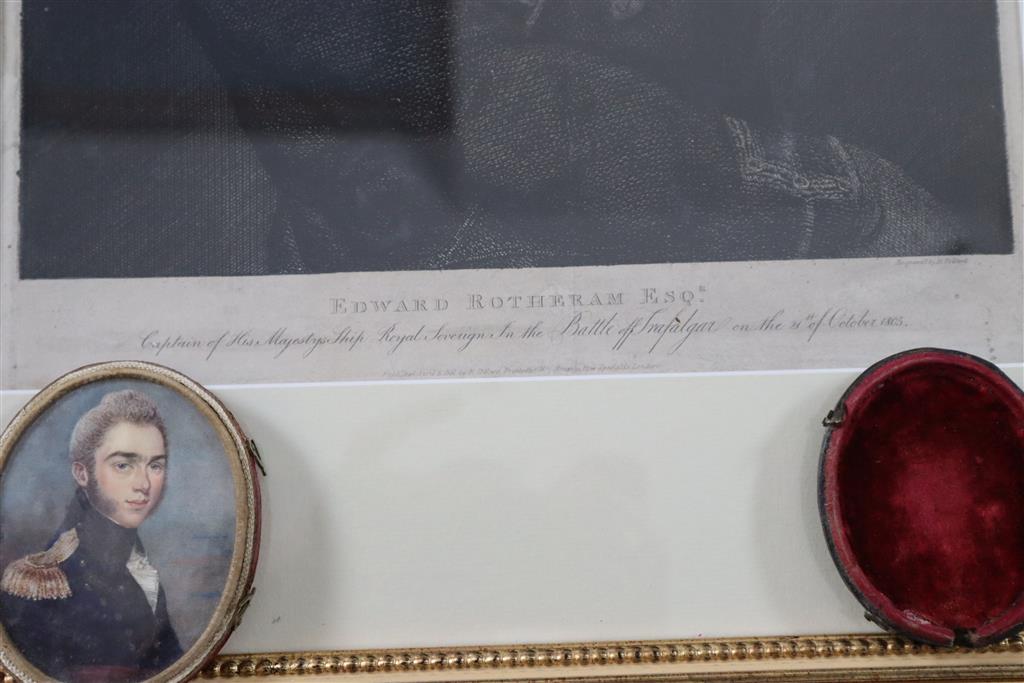 Engraved by
EDWARD ROTHERAM ESQR.
Captain of His Majestys Ship Royal Sovereign In the Battle off Trafalgar on the 21st of October 1805.
London